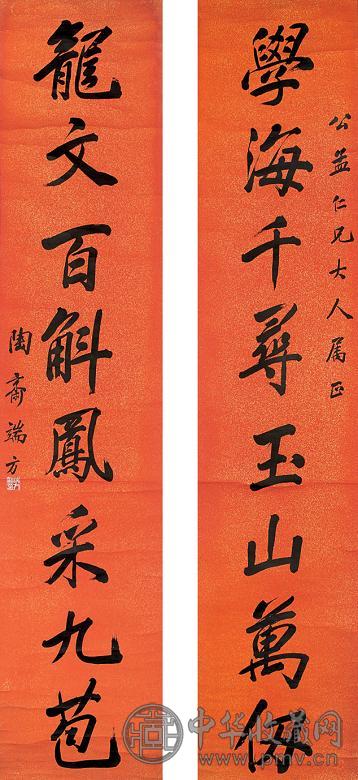 公益仁兄大人属正
學海千尋玉山萬仭
龍文百斛鳳采九苞
陶齋端方
中华收藏网